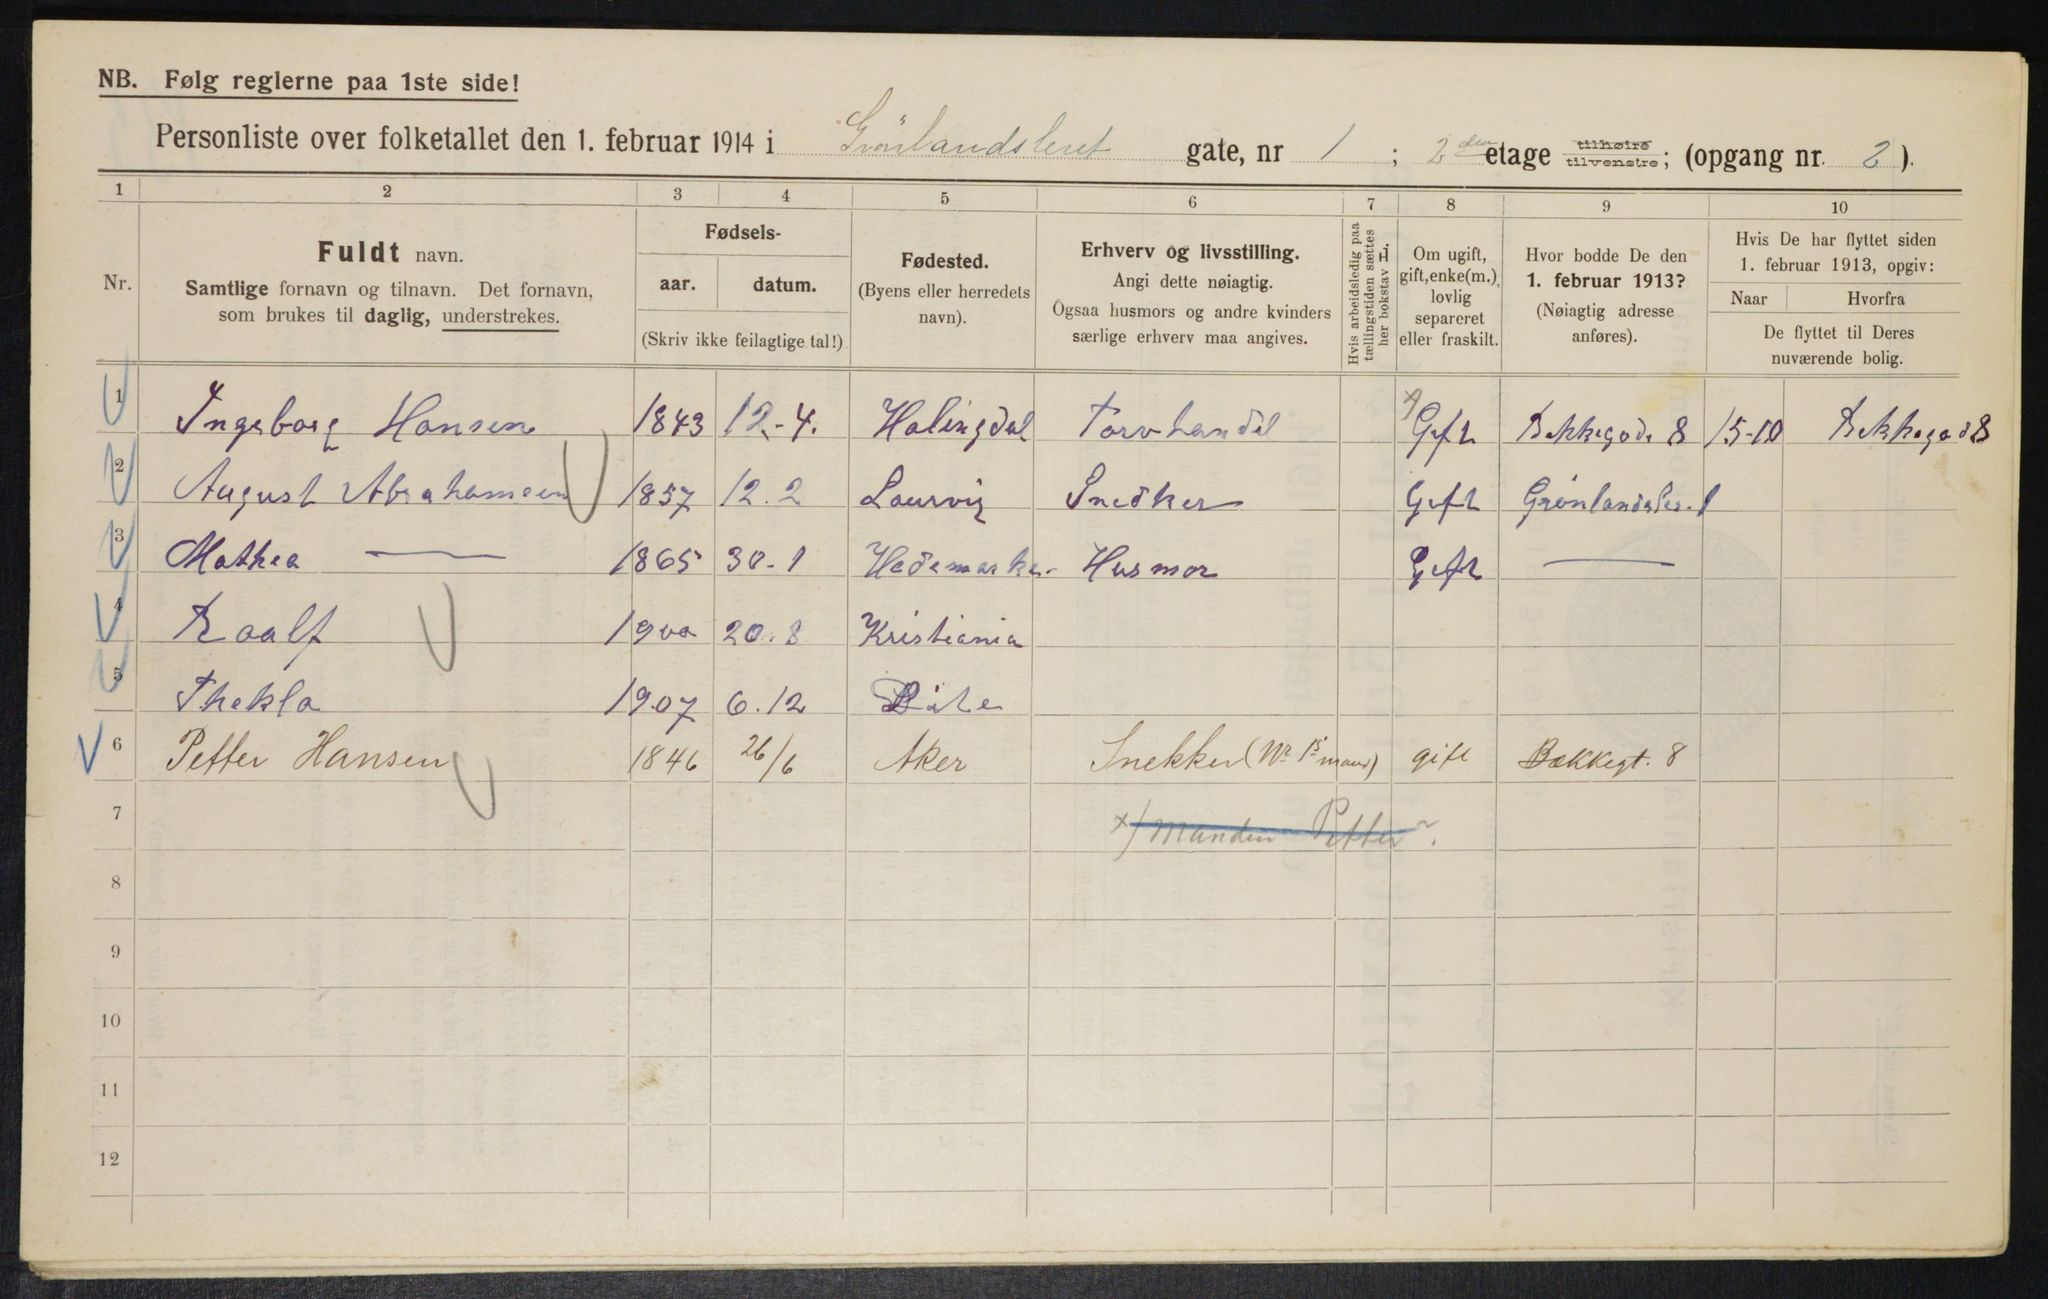 NB. Følg reglerne paa 1ste side!
Personliste over folketallet den 1. februar 1914 i Grönlandsleret gate, nr 1 ; 2den etage tilhøire tilvenstre; (opgang nr. 2 ).
1 2 3 4 5 6 7 8 9 10
Nr.
Fuldt navn.
Samtlige fornavn og tilnavn. Det fornavn,
som brukes til daglig, understrekes.
Fødsels-
aar. datum.
(Skriv ikke feilagtige tal!)
Fødested.
(Byens eller herredets
navn).
Erhverv og livsstilling.
Angi dette nøiagtig.
Ogsaa husmors og andre kvinders
særlige erhverv maa angives.
Hvis arbeidsledig paa
tællingstiden sættes
her bokstav L.
Om ugift,
gift, enke(m.),
lovlig
separeret
eller fraskilt.
Hvor bodde De den
1. februar 1913?
(Nøiagtig adresse
anføres).
Hvis De har flyttet siden
1. februar 1913, opgiv:
Naar Hvorfra
De flyttet til Deres
nuværende bolig.
1 Ingeborg Hansen 1843 12-4. Halingdal Torvhandel x Gift Bekkegade 8 15-10 Bekkegad 8
2 August Abrahamsen 1857 12.2 Laurvig Snedker Gift Grønlandsler. 1
3 Mathea — 1865 30-1 Hedemarke- Husmor Gift —
4 Roalf 1900 20.8 Kristiania
5 Thekla 1907 6.12 Dite
6 Petter Hansen 1846 26/6 Aker Snekker (Nr 1s mand) gift Bækkegt. 8
7 x) Manden Petter
8
9
10
11
12